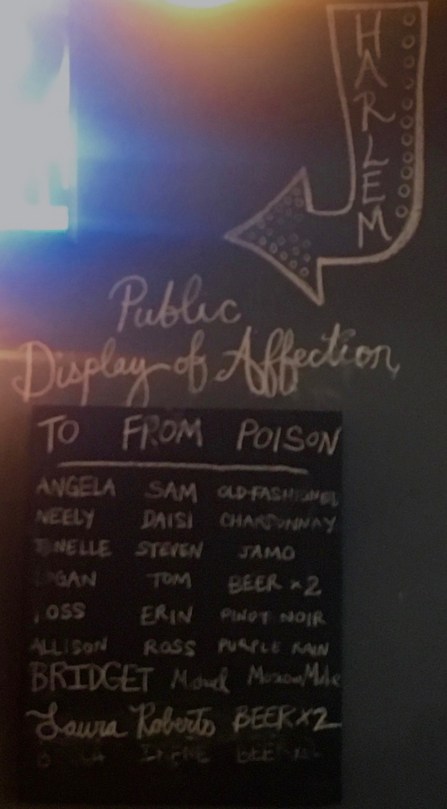 HARLEM
Public
Display of Affection
TO FROM POISON
ANGELA SAM OLD-FASHIONED
NEELY DAISI CHARDONNAY
STEVEN JAMO
TOM BEER x 2
ERIN PINOT NOIR
ALLISON ROSS PURPLE RAIN
BRIDGET
Laura Roberts BEER X 2